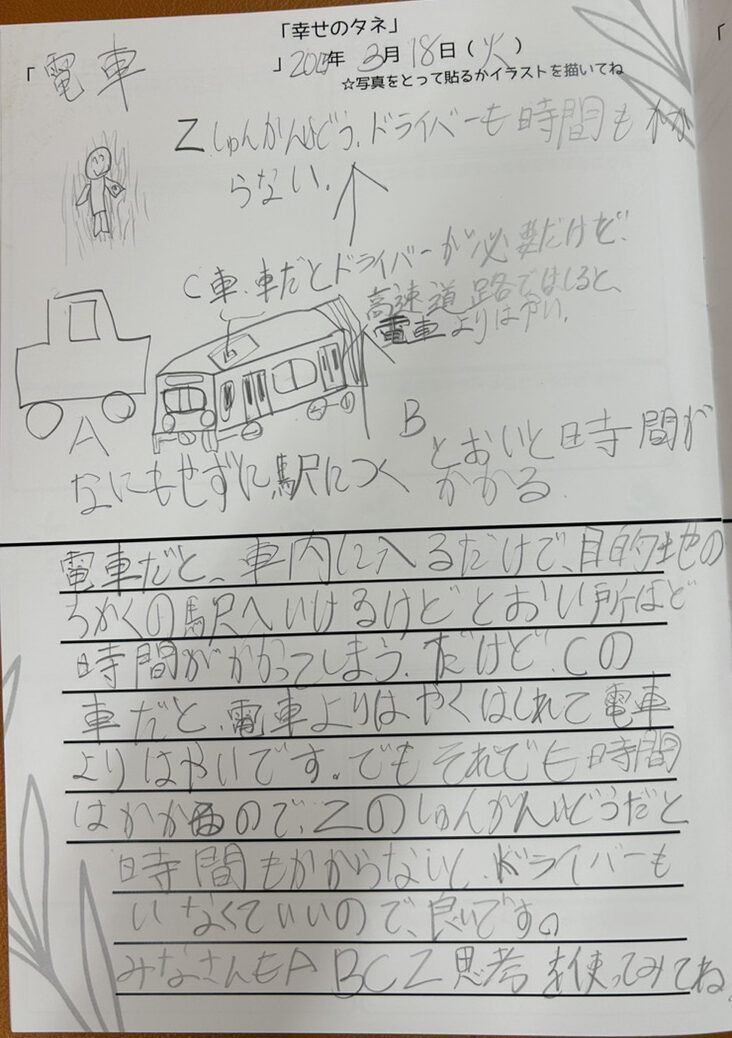 「幸せのタネ」
「電車」 年 3月18日(火)
☆写真をとって貼るかイラストを描いてね
Z しゅんかんいどう、ドライバーも時間もかか
らない。
C 車、車だとドライバーが必要だけど、
高速道路ではしると、
電車よりはやい。
A
なにもせずに駅につく
B
とおいと時間が
かかる
電車だと、車内に入るだけで、目的地の
ちかくの駅へいけるけどとおい所ほど
時間がかかってしまう。だけど、Cの
車だと、電車よりはやくはしれて電車
よりはやいです。でもそれでも時間
はかかるので、Zのしゅんかんいどうだと
時間もかからないし、ドライバーも
いなくていいので、良いです。
みなさんもABCZ思考を使ってみてね。
「